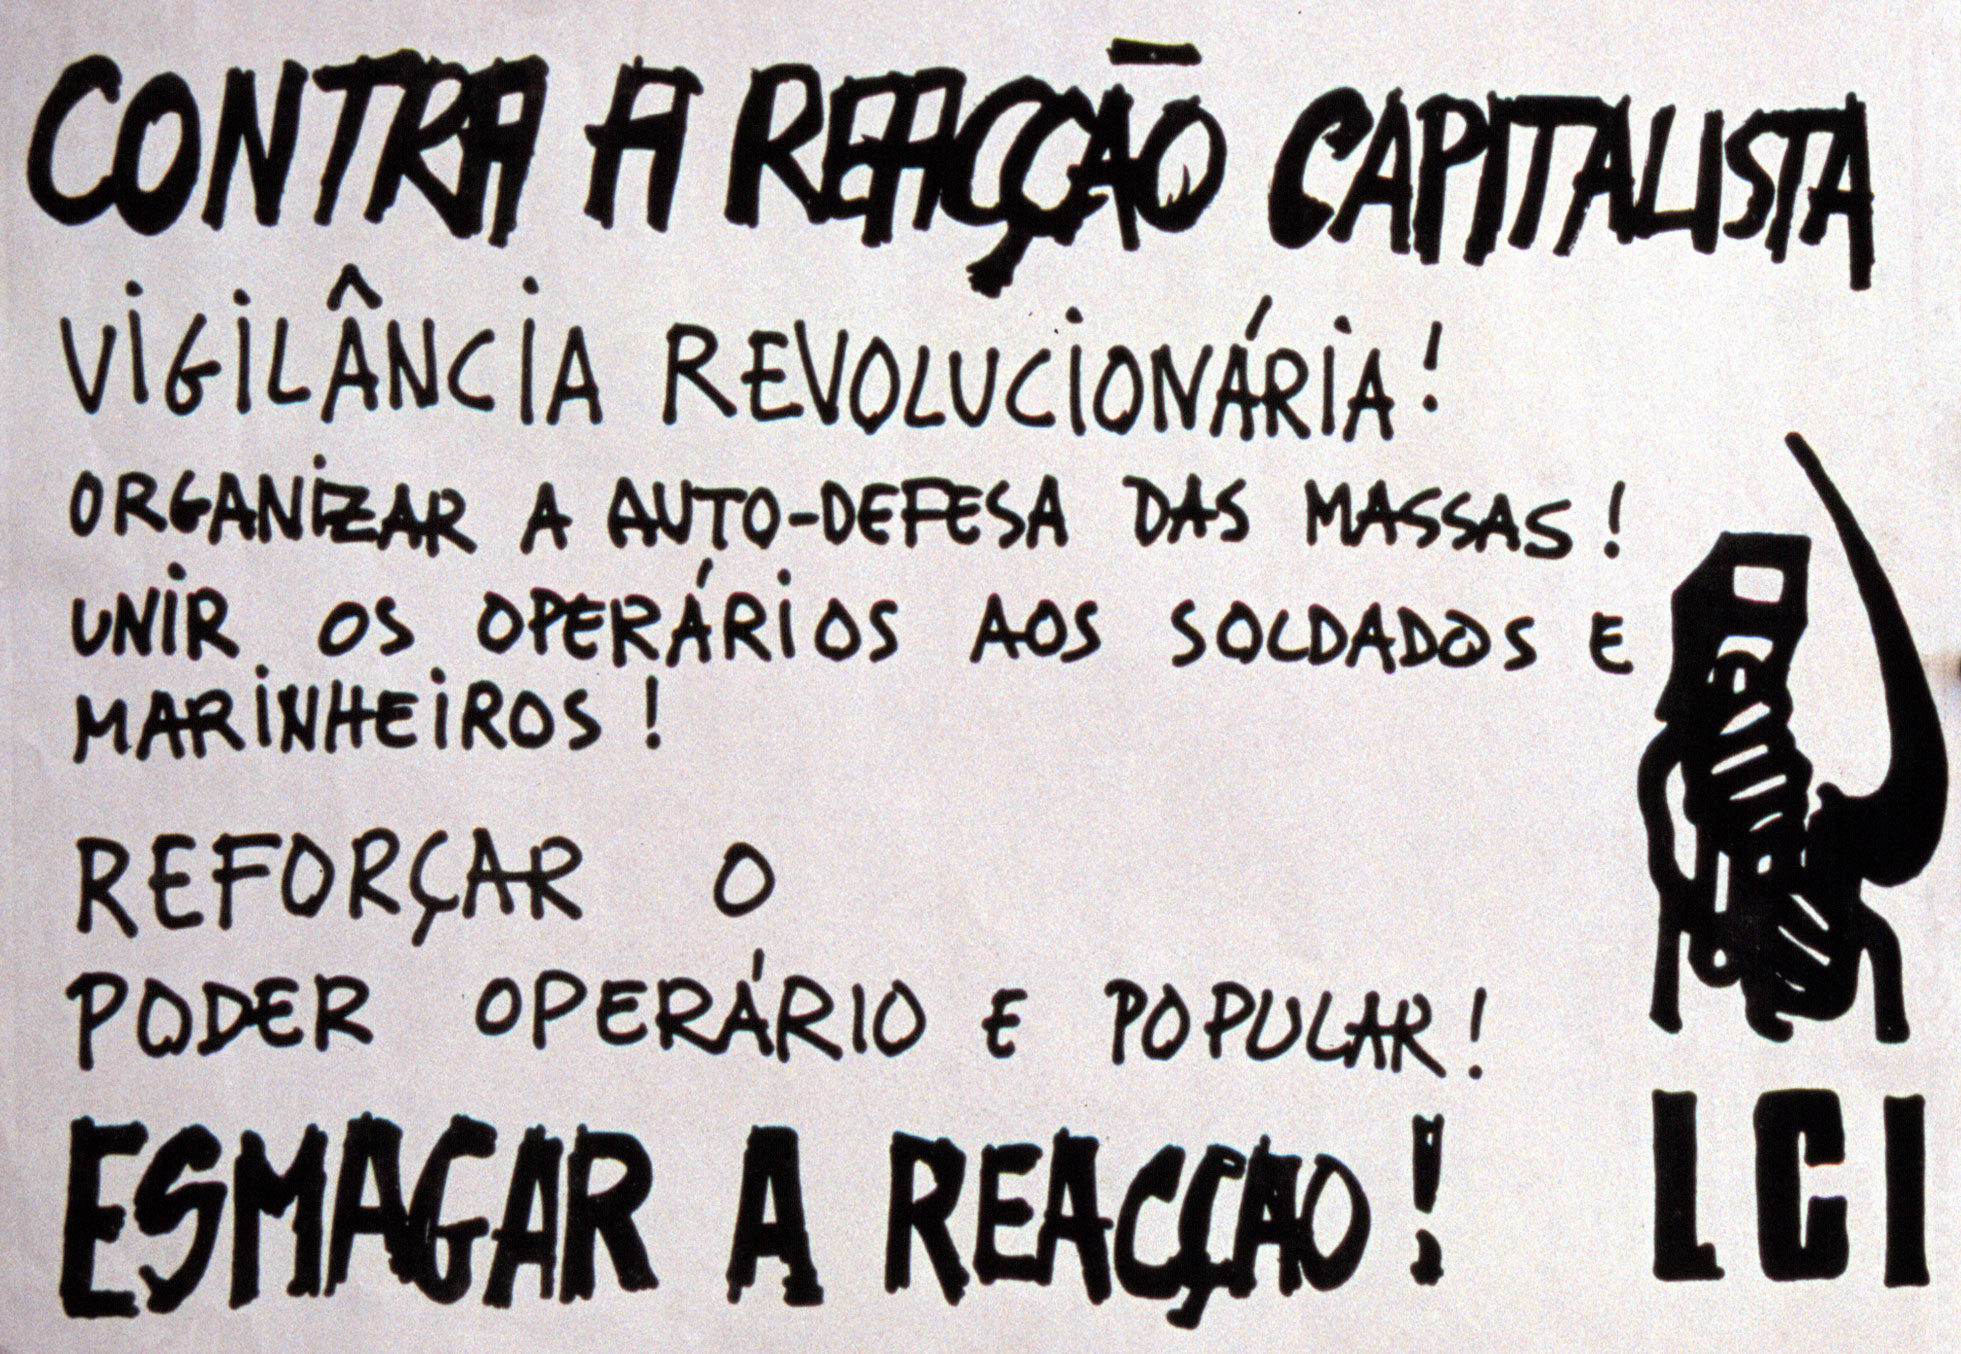 CONTRA A REACÇÃO CAPITALISTA
VIGILÂNCIA REVOLUCIONÁRIA!
ORGANIZAR A AUTO-DEFESA DAS MASSAS!
UNIR OS OPERÁRIOS AOS SOLDADOS E
MARINHEIROS!
REFORÇAR O
PODER OPERÁRIO E POPULAR!
ESMAGAR A REACÇAO!
LCI